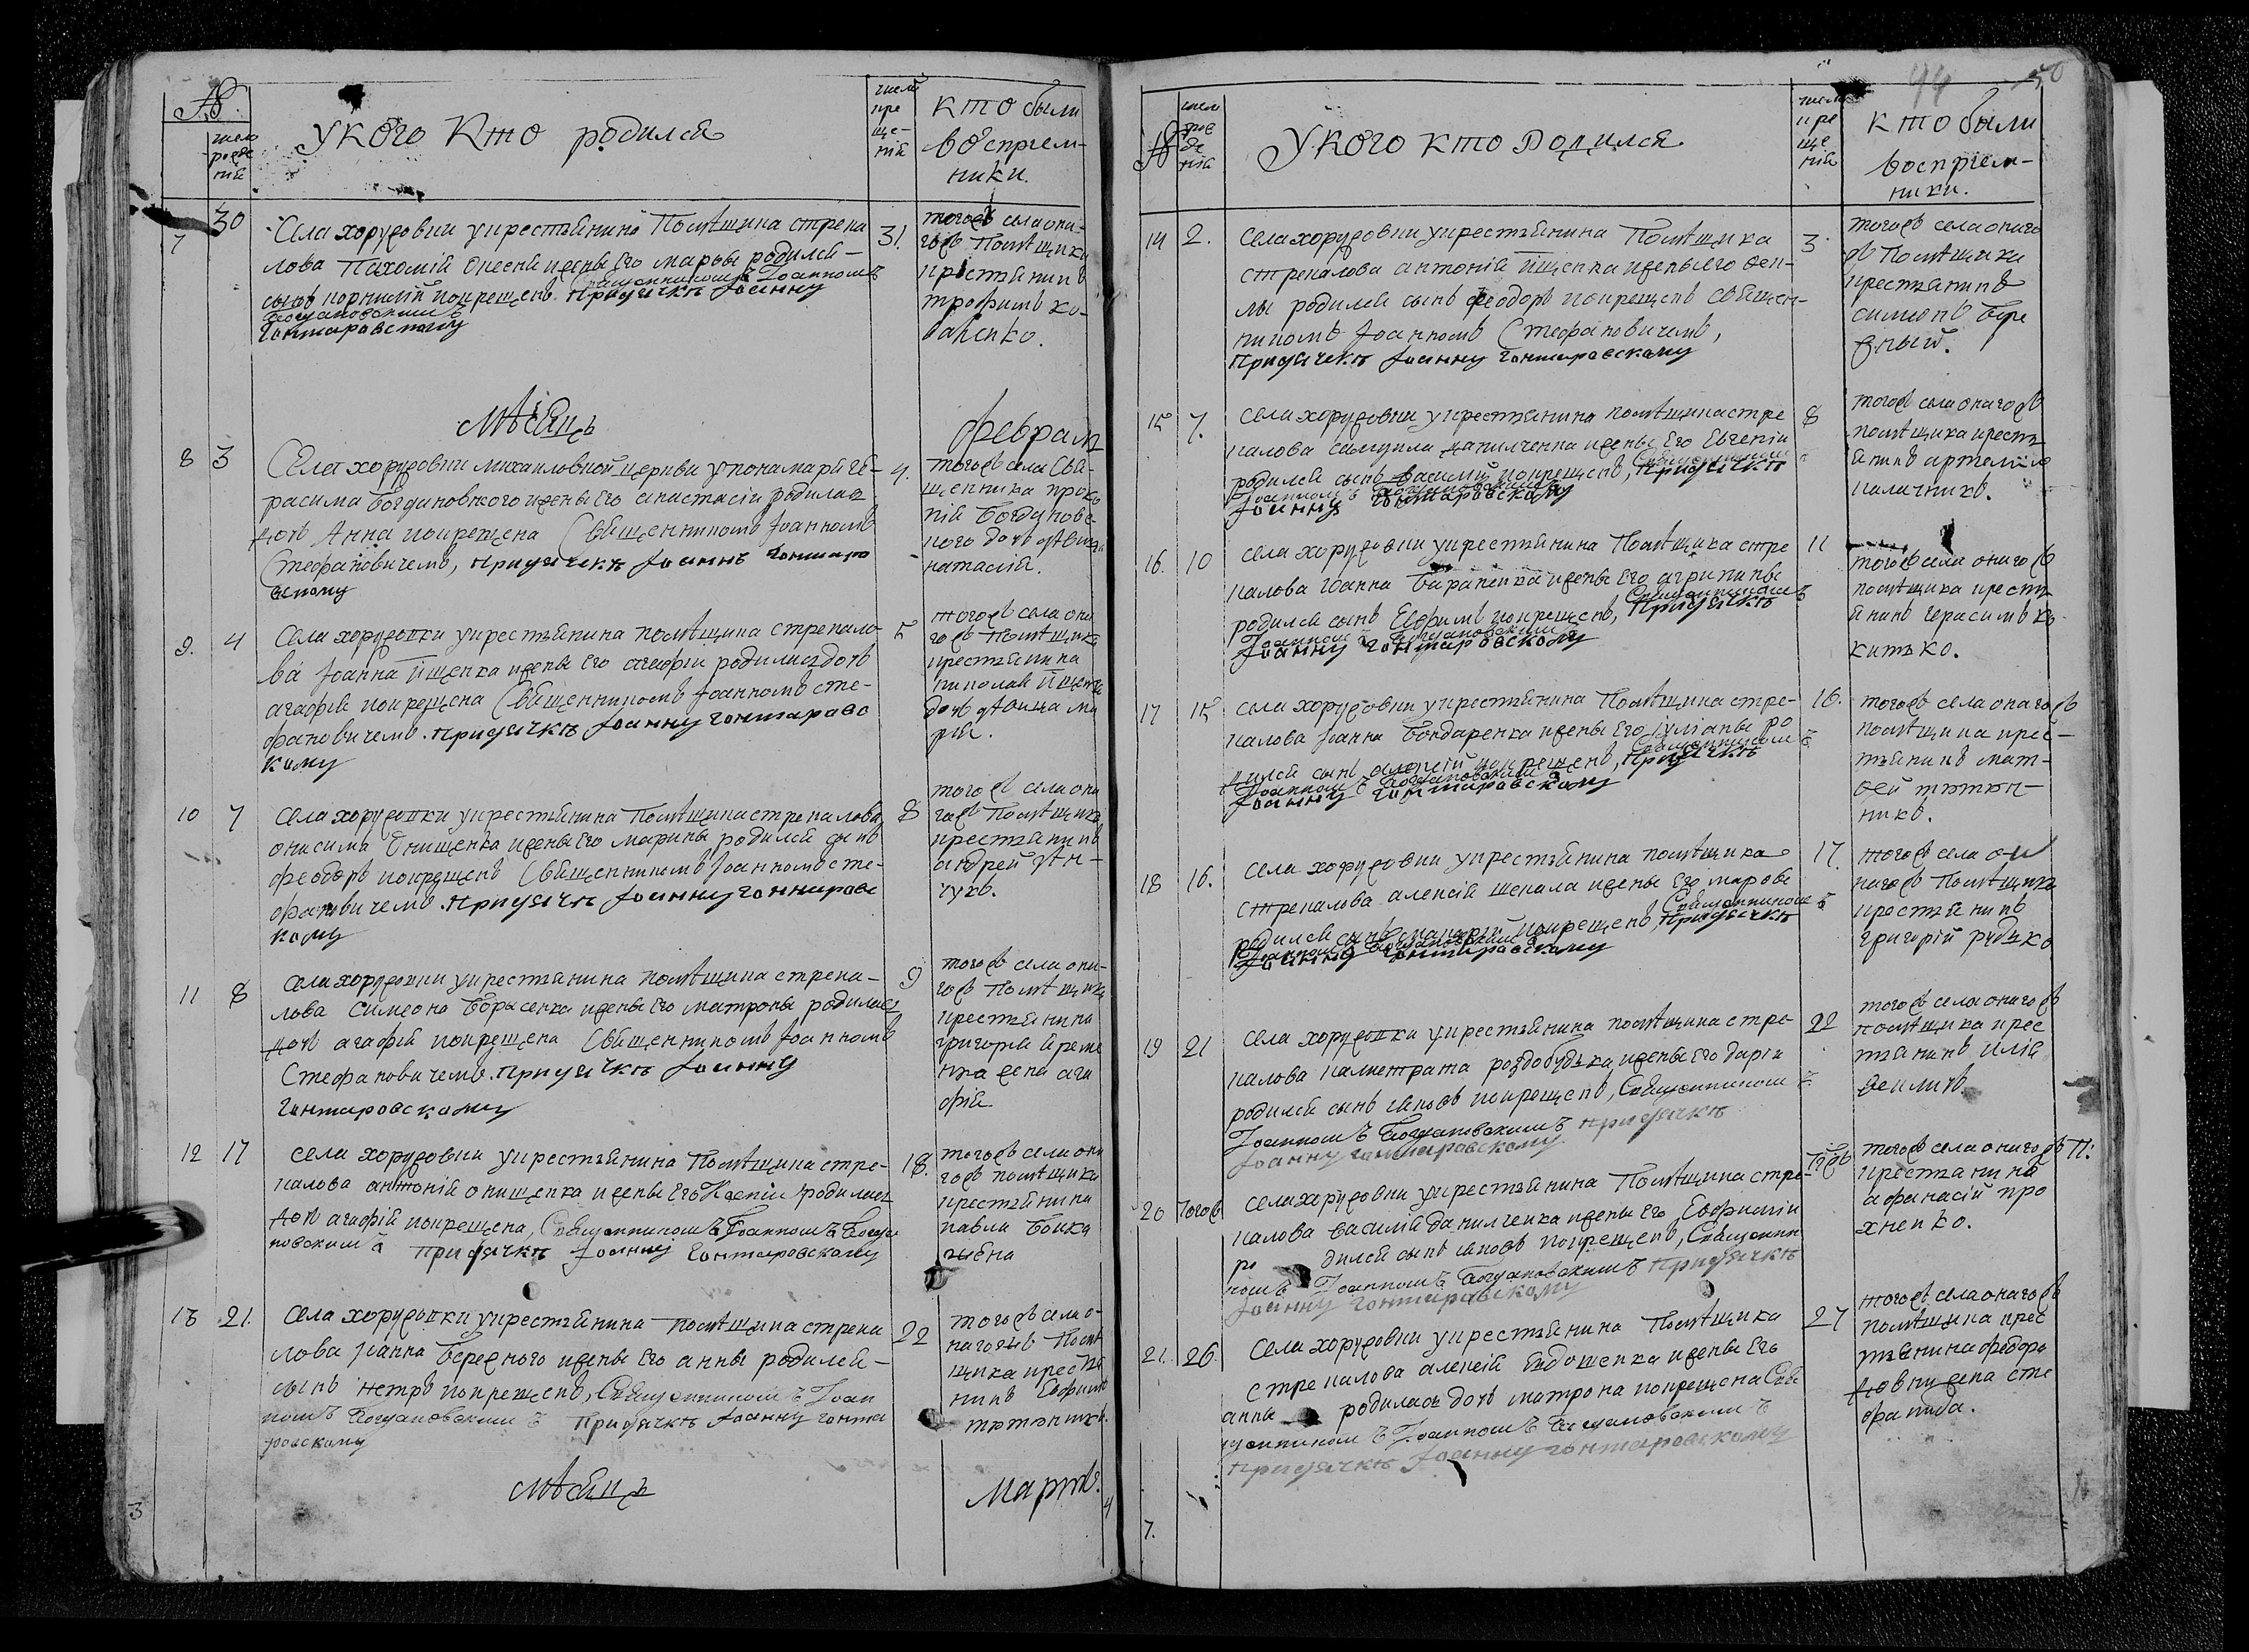 №.
число рожде ній
У кого кто родился
число кре ще- ній
кто были
воспріем-
ники.
7
30
Села хоружовки укрестьянина Помѣщика стрека
лова Пахомій Онесен ижены Его марѳы родился
сынъ корнилій покрещенъ Священникомъ Іоанномъ
Богдановскимъ При дячкѣ Іоанну
Гонтаровскому
31.
тогожъ села она-
гожъ Помѣщика
крестянинъ
трофимъ ко-
валенко.
Мѣсяцъ
февраль
8
3
Села хоружовки михаиловской церкви упонамаря ге-
расима Богдановского ижены Его анастасіи родилась
дочь Анна покрещена Священникомъ Іоанномъ
Стефановичемъ, При дячкѣ Іоаннъ Гонтаро
вскому
4.
тогожъ села Свя-
щенника проко
пій Богдановс-
кого дочь дѣвица
наталія.
9.
4
Села хоружовки укрестьянина помѣщика стрекало-
ва Іоанна Ищенка ижены Его агафіи родилась дочь
агафія покрещена Священникомъ Іоанномъ сте-
фановичемъ. При дячкѣ Іоанну Гонтаровс
кому
5
тогожъ села она
гожъ Помѣщика
крестьянина
николая Ищенка
дочь дѣвица ма
рія.
10
7
Села хоружовки укрестьянина Помѣщика стрекалова
онисима Онищенка ижены Его марины родился сынъ
феодоръ покрещенъ Священникомъ Іоанномъ сте-
фановичемъ. При дячкѣ Іоанну Гонтаровс
кому
8
тогожъ села она
гожъ Помѣщика
крестьянинъ
андрей
11
8
Села хоружовки укрестьянина помѣщика стрека-
лова Симеона Борысенка ижены Его матроны родилась
дочь агафія покрещена Священникомъ Іоанномъ
Стефановичемъ. При дячкѣ Іоанну
Гонтаровскому
9
тогожъ села она-
гожъ Помѣщика
крестьянина
григорія
жена ага
фія
12
17
Села хоружовки укрестьянина Помѣщика стре-
калова антоній онищенка ижены Его Ксеніи родилась
дочь агафія покрещена, Священникомъ Іоанномъ Богда
новскимъ При дячкѣ Іоанну Гонтаровскому
18.
тогожъ села она
гожъ помѣщика
крестьянина
павла
13
21.
Села хоружовки укрестьянина помѣщика стрека
лова Іоанна Бережного ижены Его анны родился
сынъ петръ покрещенъ, Священникомъ Іоан
номъ Богдановскимъ При дячкѣ Іоанну Гонта
ровскому
22
тогожъ села о-
нагожъ Помѣ
щика крестья
нинъ Ефимъ
тютюникъ.
Мѣсяцъ
Мартъ.
3
4
44
50
№
число рож де ній
У кого кто родился
число кре ще ній
кто были
воспріем-
ники.
14
2.
Села хоружовки укрестьянина Помѣщика
стрекалова антоній Ищенка ижены его ѳек-
лы родился сынъ феодоръ покрещенъ Священ-
никомъ Іоанномъ Стефановичемъ,
При дячкѣ Іоанну Гонтаровскому
3.
тогожъ села онаго
жъ Помѣщика
крестьянинъ
симеонъ Бере
жный.
15
7.
Села хоружовки укрестьянина помѣщика стре
калова самуила данилченка ижены Его Евгеніи
родился сынъ василій покрещенъ, Священникомъ При дячкѣ
Іоанномъ Богдановскимъ
Іоанну Гонтаровскому
8
тогожъ села онагожъ
помѣщика кресть
янинъ артемій
16.
10
Села хоружовки укрестьянина Помѣщика стре
калова Іоанна Бараненка ижены Его агрипины
родился сынъ Ефимъ покрещенъ, Священникомъ При дячкѣ
Іоанномъ Богдановскимъ
Іоанну Гонтаровскому
11
тогожъ села онагожъ
помѣщика кресть
янинъ герасимъ ко
китько.
17
15
Села хоружовки укрестьянина Помѣщика стре-
калова Іоанна Бондаренка ижены Его іуліаны ро
дился сынъ алексій покрещенъ, Священникомъ При дячкѣ
Іоанномъ Богдановскимъ
Іоанну Гонтаровскому
16.
тогожъ села онагожъ
помѣщика крес-
тьянинъ мат-
вей тютюн-
никъ.
18
16.
Села хоружовки укрестьянина помѣщика
стрекалова алексій шекала ижены Его марѳы
родился сынъ покрещенъ, Священникомъ При дячкѣ
Іоанномъ Богдановскимъ
Іоанну Гонтаровскому
17.
тогожъ села о-
нагожъ Помѣщика
крестьянинъ
григорій рудько
19
21
Села хоружовки укрестьянина помѣщика стре-
калова калистрата роздобудька ижены Его даріи
родился сынъ іаковъ покрещенъ, Священникомъ
Іоанномъ Богдановскимъ При дячкѣ
Іоанну Гонтаровскому
22
тогожъ села онагожъ
помѣщика крес
тянинъ илія
20
Тогожъ
Села хоружовки укрестьянина Помѣщика стре-
калова василія данилченка ижены Его Евфиміи
ро дился сынъ іаковъ покрещенъ, Священни
комъ Іоанномъ Богдановскимъ При дячкѣ
Іоанну Гонтаровскому
тогожъ
тогожъ села онагожъ П:
крестянина
афанасій про
хненко.
21.
26.
Села хоружовки укрестьянина Помѣщика
стрекалова алексій Евдошенка ижены Его
анны родилась дочь матрона покрещена Свя
щенникомъ Іоанномъ Богдановскимъ
При дячкѣ Іоанну Гонтаровскому
27
тогожъ села онагожъ
помѣщика крес
тьянина федора
жена сте
фанида.
7.